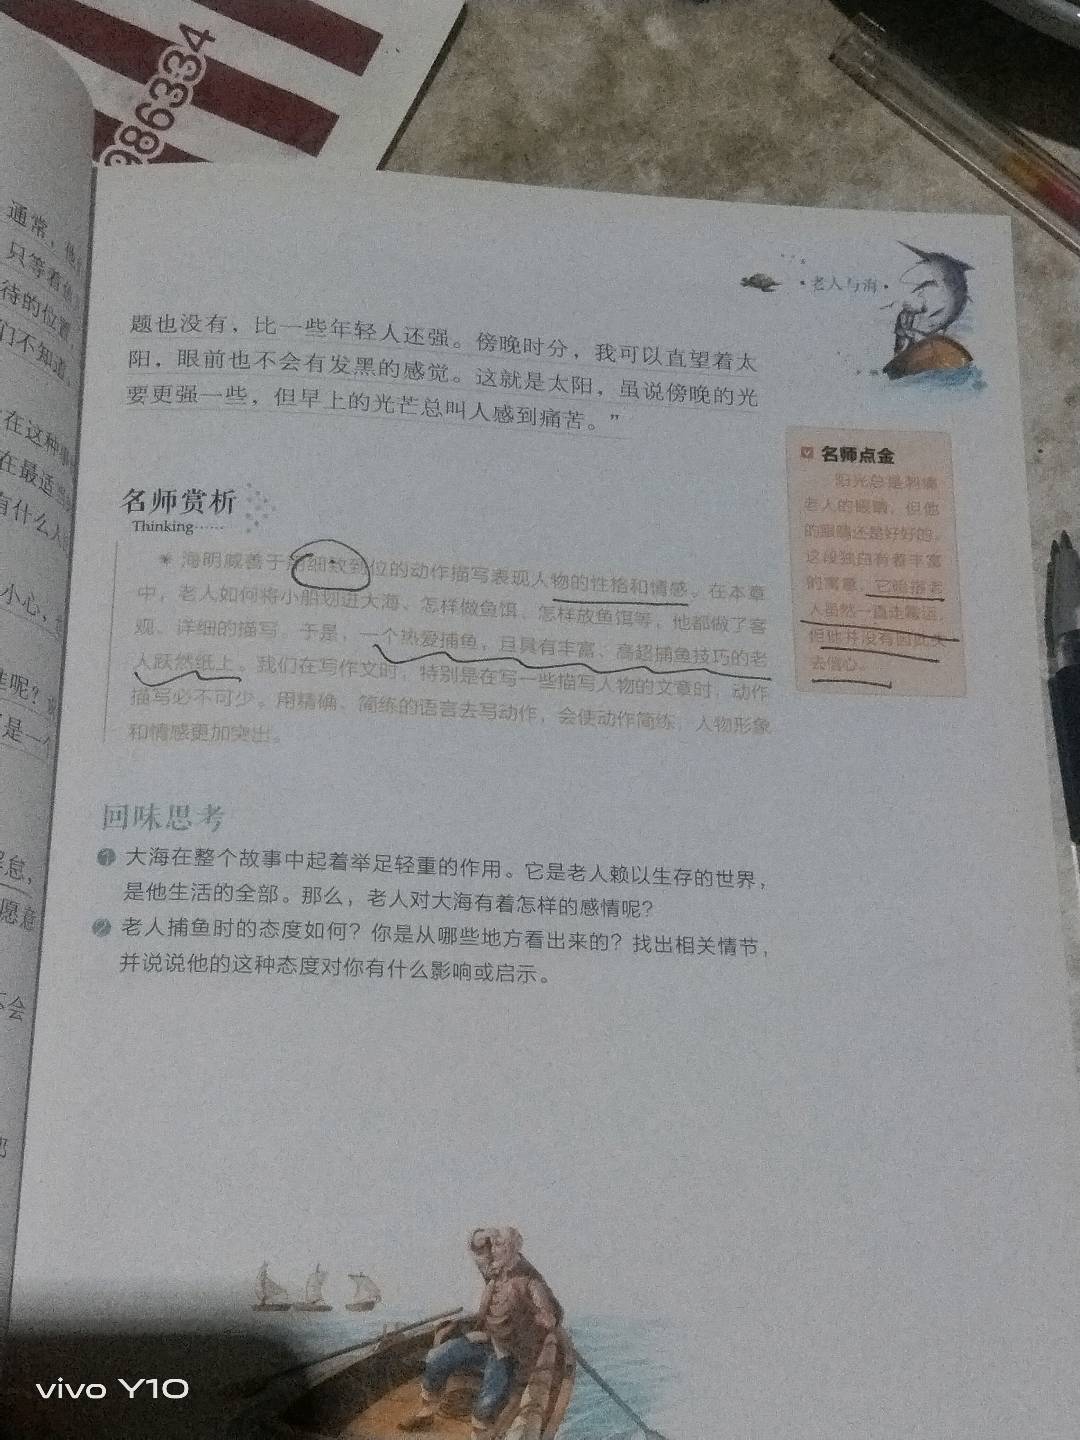 986334
通常，他
只等着鱼
待的位置，
们不知道，
在这种事
在最适当
有什么人
小心，
是一个
愿意
会
·老人与海·
题也没有，比一些年轻人还强。傍晚时分，我可以直望着太
阳，眼前也不会有发黑的感觉。这就是太阳，虽说傍晚的光
要更强一些，但早上的光芒总叫人感到痛苦。”
名师点金
阳光总是刺痛
老人的眼睛，但他
的眼睛还是好好的。
这段独白有着丰富
的寓意，它暗指老
人虽然一直走霉运，
但他并没有因此失
去信心。
名师赏析
Thinking……
海明威善于用细致到位的动作描写表现人物的性格和情感。在本章
中，老人如何将小船划进大海、怎样做鱼饵、怎样放鱼饵等，他都做了客
观、详细的描写。于是，一个热爱捕鱼，且具有丰富、高超捕鱼技巧的老
人跃然纸上。我们在写作文时，特别是在写一些描写人物的文章时，动作
描写必不可少。用精确、简练的语言去写动作，会使动作简练，人物形象
和情感更加突出。
回味思考
1 大海在整个故事中起着举足轻重的作用。它是老人赖以生存的世界，
是他生活的全部。那么，老人对大海有着怎样的感情呢？
2 老人捕鱼时的态度如何？你是从哪些地方看出来的？找出相关情节，
并说说他的这种态度对你有什么影响或启示。
vivo Y10